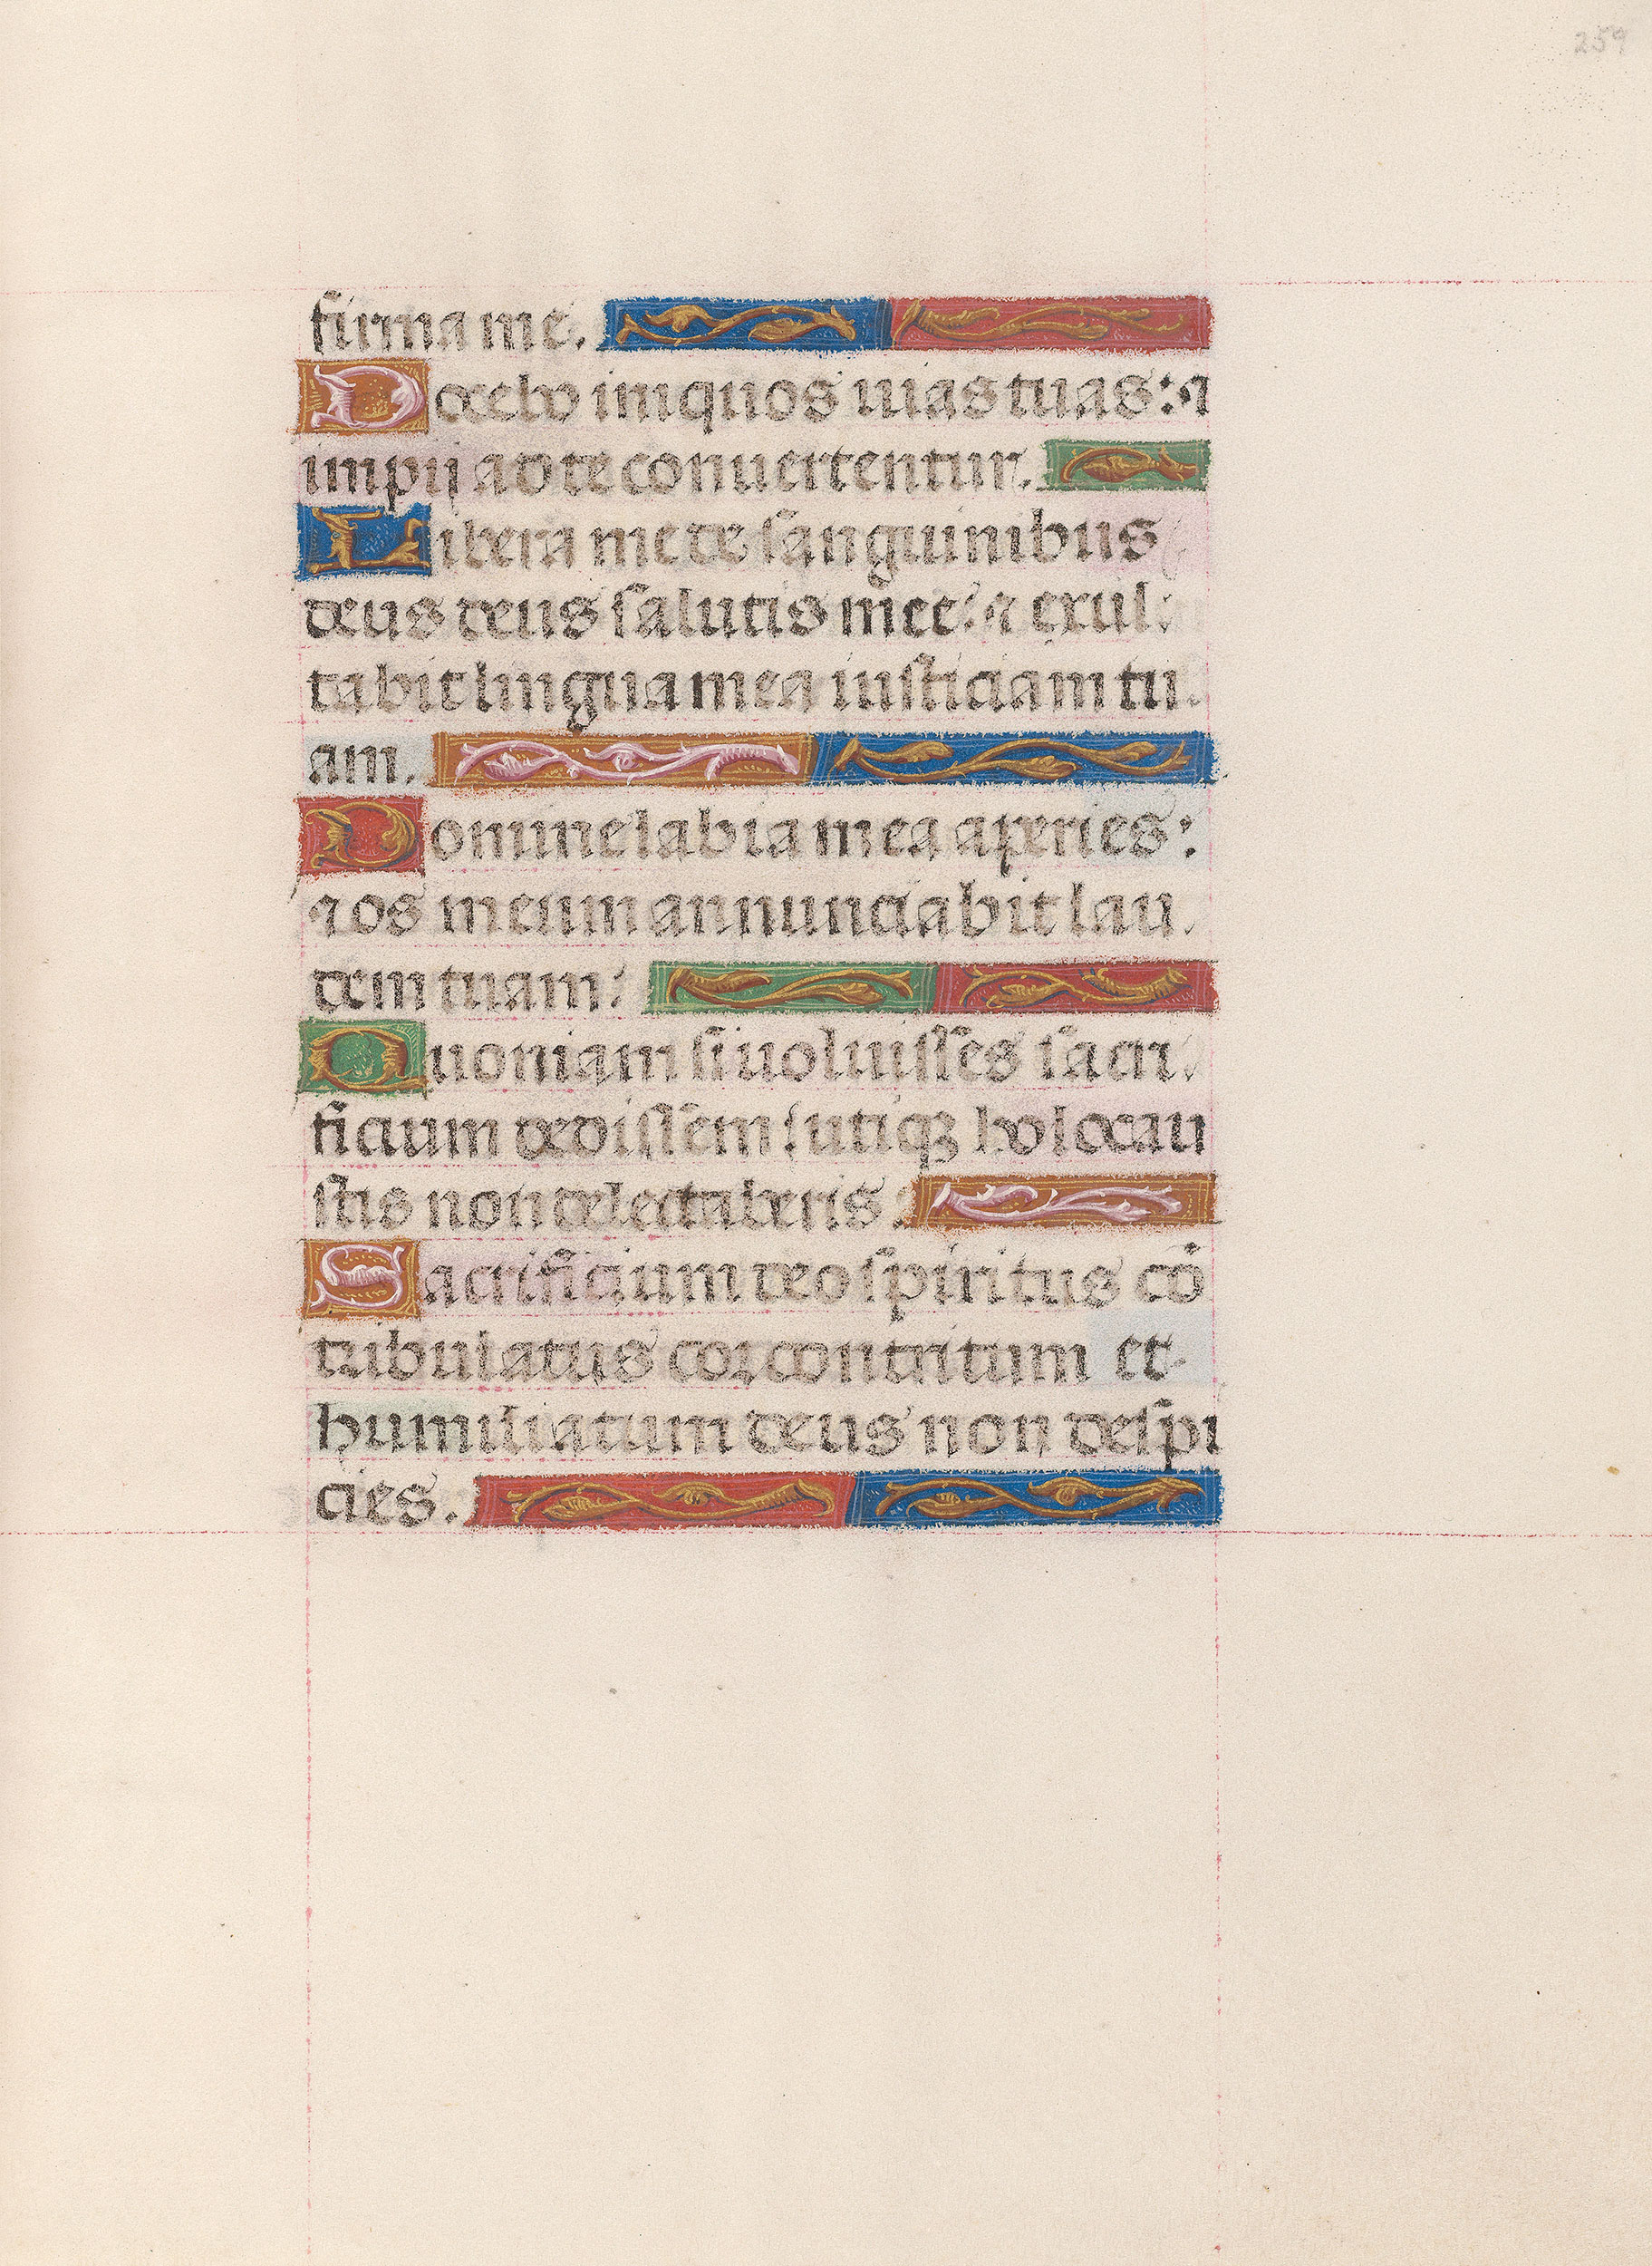 259
firma me.
Docebo iniquos uias tuas: ⁊
impij ad te conuertentur.
Libera me de sanguinibus
deus deus salutis mee: ⁊ exul
tabit lingua mea iusticiam tu
am.
Domine labia mea aperies:
⁊ os meum annunciabit lau
dem tuam:
Quoniam si uoluisses sacri
ficium dedissem: utiqꝫ holocau
stis non delectaberis.
Sacrificium deo spiritus cō
tribulatus cor contritum et
humiliatum deus non despi
cies.